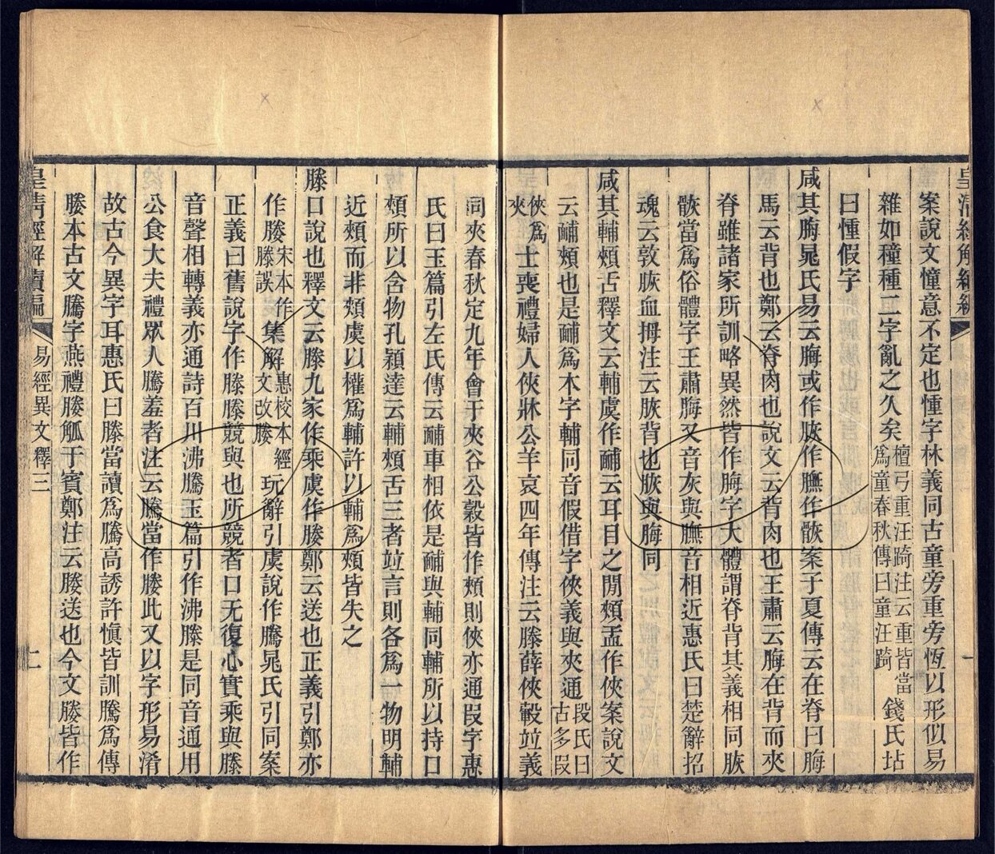 案說文憧意不定也憧字林義同古童旁重旁恆以形似易
雜如穜種二字亂之久矣檀弓重汪踦注云重皆當為童春秋傳曰童汪踦錢氏坫
曰憧假字
咸其脢晁氏易云脢或作脄作膴作㱻案子夏傳云在脊曰脢
馬云背也鄭云脊肉也說文云背肉也王肅云脢在背而夾
脊雖諸家所訓略異然皆作脢字大體謂脊背其義相同脄
㱻當爲俗體字王肅脢又音灰與膴音相近惠氏曰楚辭招
魂云敦脄血拇注云脄背也脄與脢同
咸其輔頰舌釋文云輔虞作䩉云耳目之閒頰孟作俠案說文
云䩉頰也是䩉爲本字輔同音假借字俠義與夾通段氏曰古多叚
俠爲夾士喪禮婦人俠牀公羊哀四年傳注云滕薛俠轂竝義
同夾春秋定九年會于夾谷公穀皆作頰則俠亦通叚字惠
氏曰玉篇引左氏傳云䩉車相依是䩉與輔同輔所以持口
頰所以含物孔穎達云輔頰舌三者竝言則各爲一物明輔
近頰而非頰虞以權爲輔許以輔爲頰皆失之
滕口說也釋文云滕九家作乘虞作媵鄭云送也正義引鄭亦
作媵宋本作滕誤集解惠校本經文改媵玩辭引虞說作騰晁氏引同案
正義曰舊說字作滕滕競與也所競者口无復心實乘與滕
音聲相轉義亦通詩百川沸騰玉篇引作沸滕是同音通用
公食大夫禮眾人騰羞者注云騰當作媵此又以字形易淆
故古今異字耳惠氏曰滕當讀爲騰高誘許愼皆訓騰爲傳
媵本古文騰字燕禮媵觚于賓鄭注云媵送也今文媵皆作
皇清經解續編
易經異文釋三